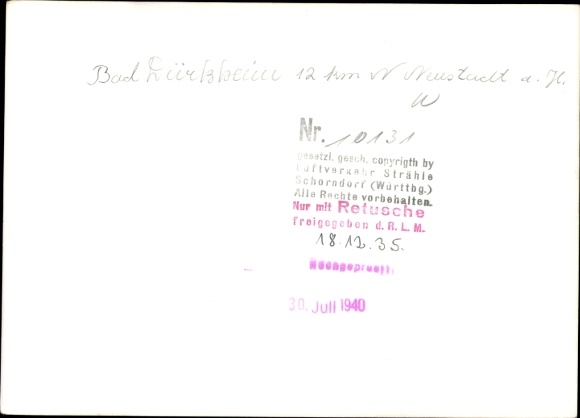 Bad Dürkheim 12 km N Neustadt a. H.
W
Nr. 10131
gesetzl. gesch. copyrigth by
Luftverkehr Strähle
Schorndorf (Württbg.)
Alle Rechte vorbehalten.
Nur mit Retusche
freigegeben d. R. L. M.
18.12.35.
Nachgeprueft:
30. Juli 1940